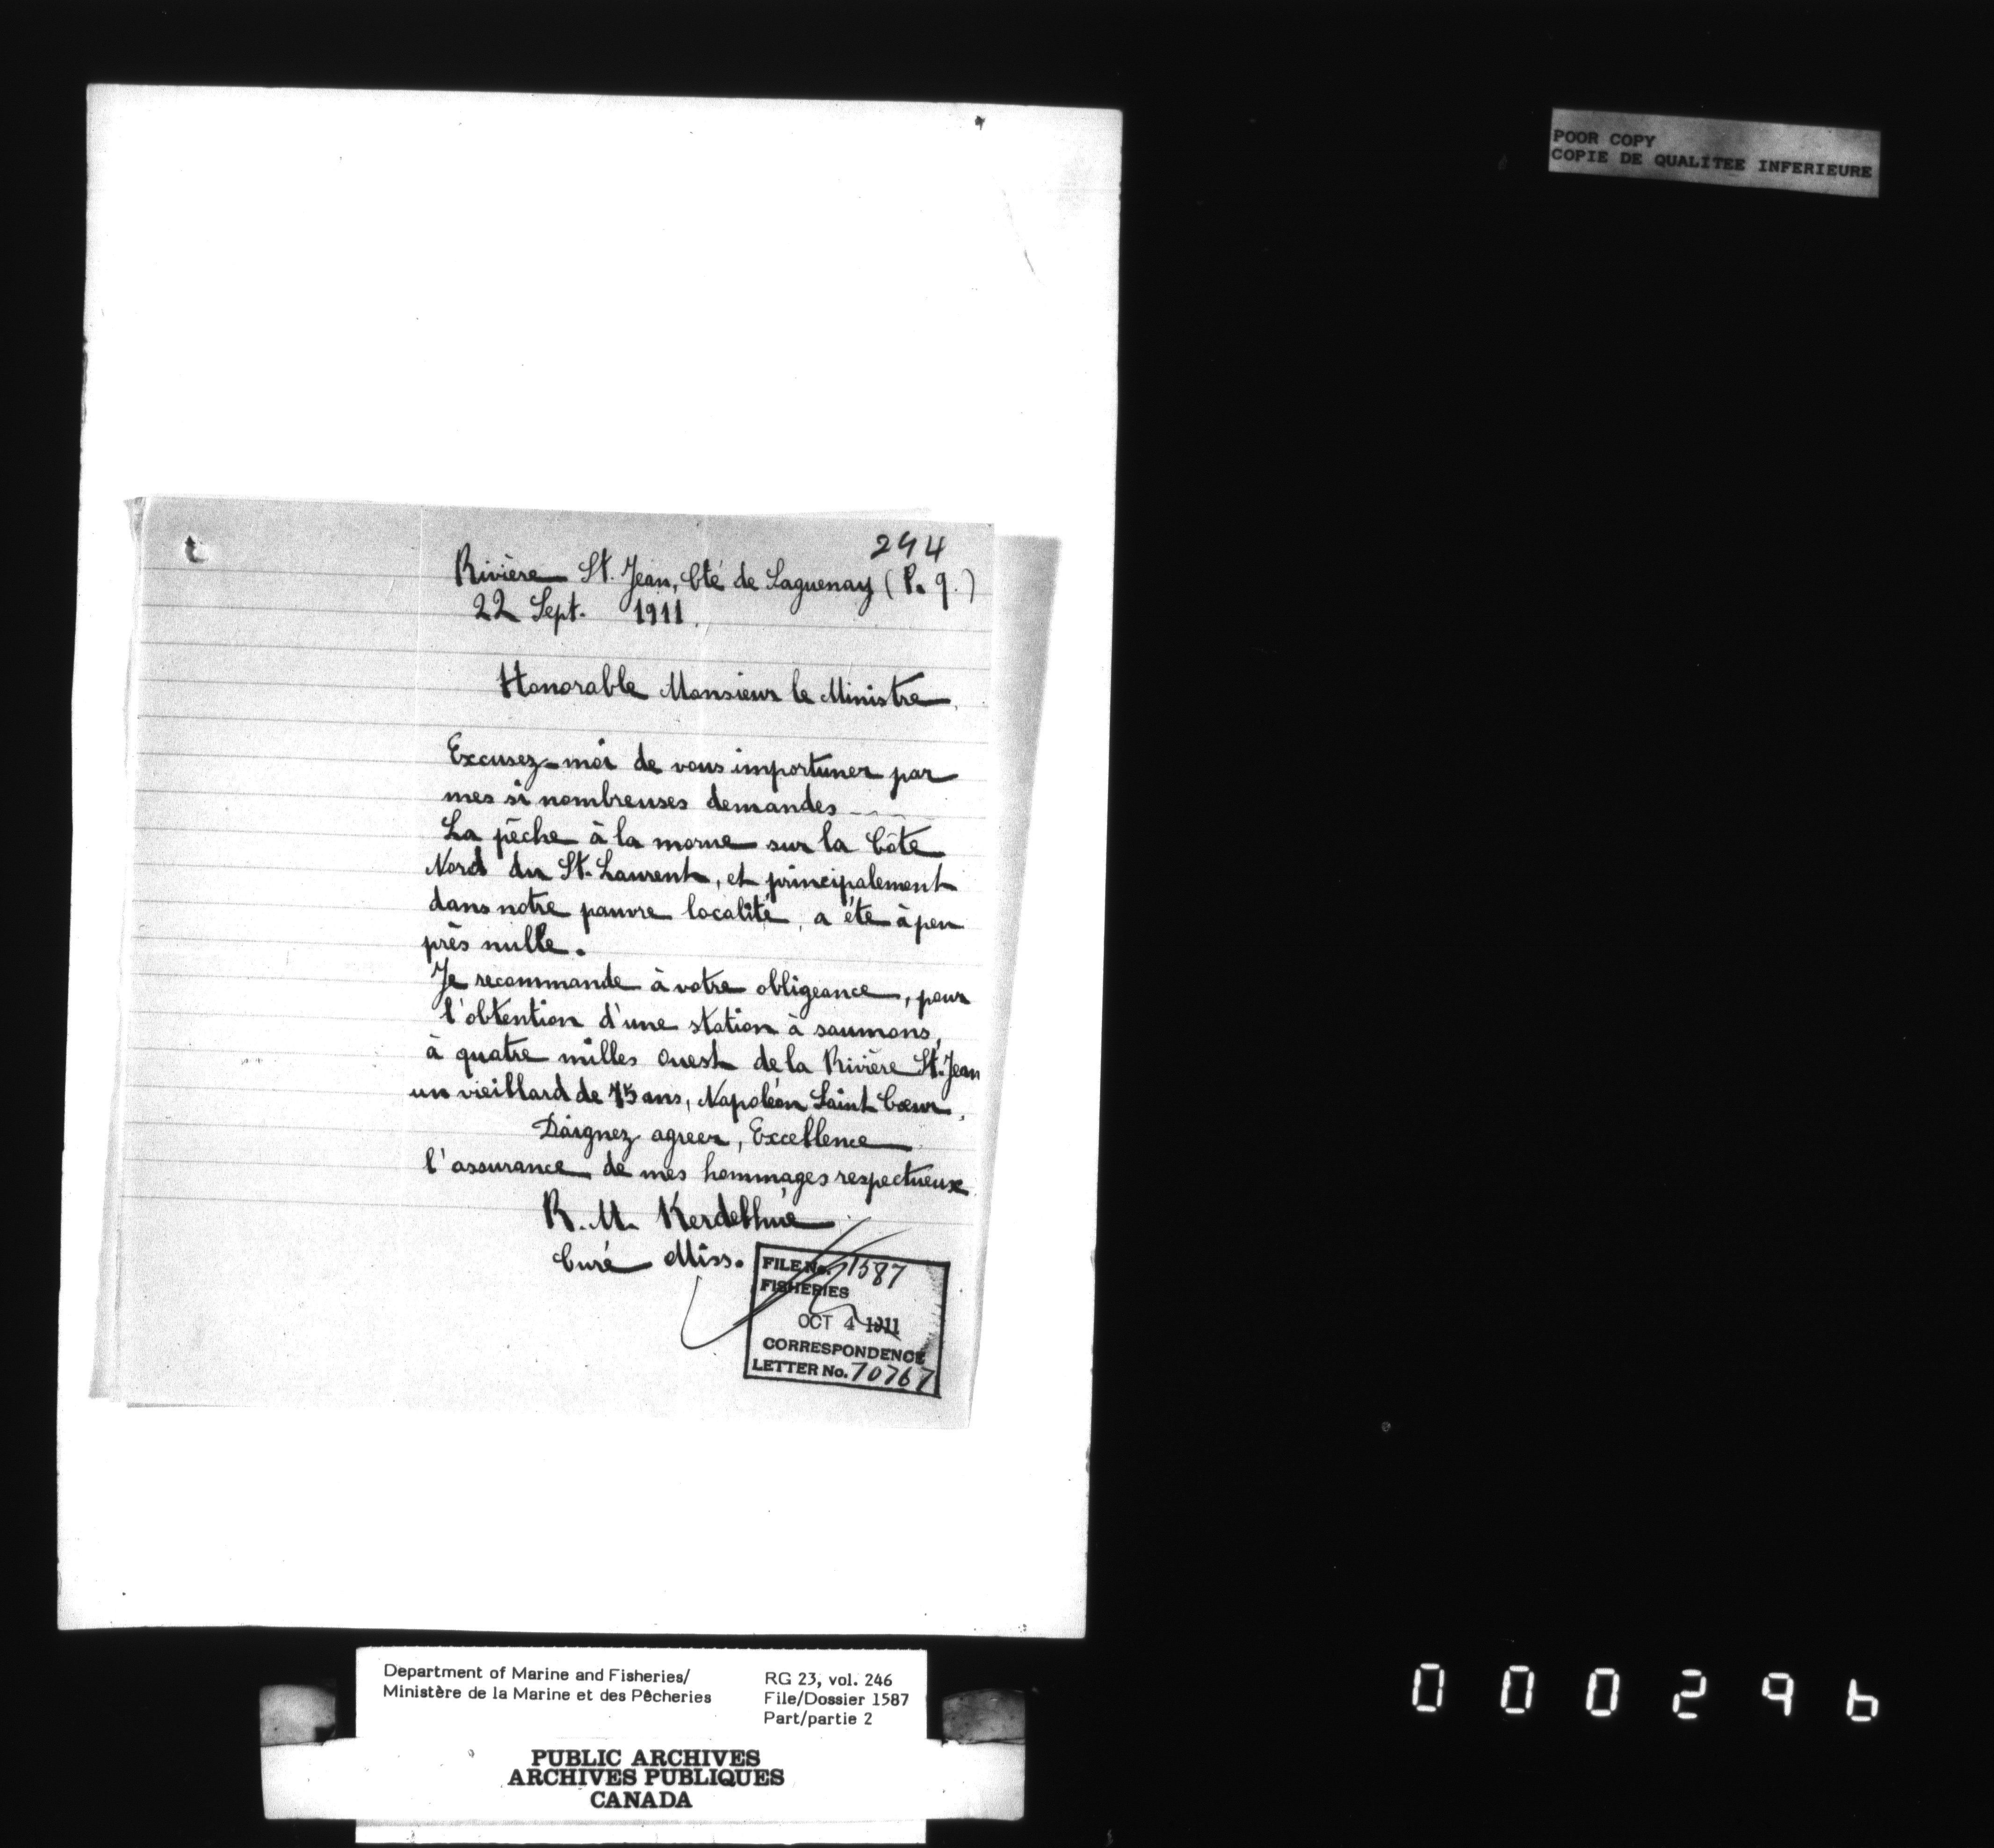 POOR COPY
COPIE DE QUALITEE INFERIEURE
294
Rivière St. Jean, Cté de Saguenay (P. q.)
22 Sept. 1911.
Honorable Monsieur le Ministre,
Excusez-moi de vous importuner par
mes si nombreuses demandes ....
La pêche à la morue sur la Côte
Nord du St. Laurent, et principalement
dans notre pauvre localité, a été à peu
près nulle.
Je recommande à votre obligeance, pour
l'obtention d'une station à saumons,
à quatre milles Ouest de la Rivière St. Jean
un vieillard de 75 ans, Napoléon Saint Coeur.
Daignez agreer, Excellence
l'assurance de mes hommages respectueux
R. M. Kerdelhué
Curé Miss.
FILE No. 1587
FISHERIES
OCT 4 1911
CORRESPONDENCE
LETTER No. 70767
Department of Marine and Fisheries/
Ministère de la Marine et des Pêcheries
RG 23, vol. 246
File/Dossier 1587
Part/partie 2
PUBLIC ARCHIVES
ARCHIVES PUBLIQUES
CANADA
000296